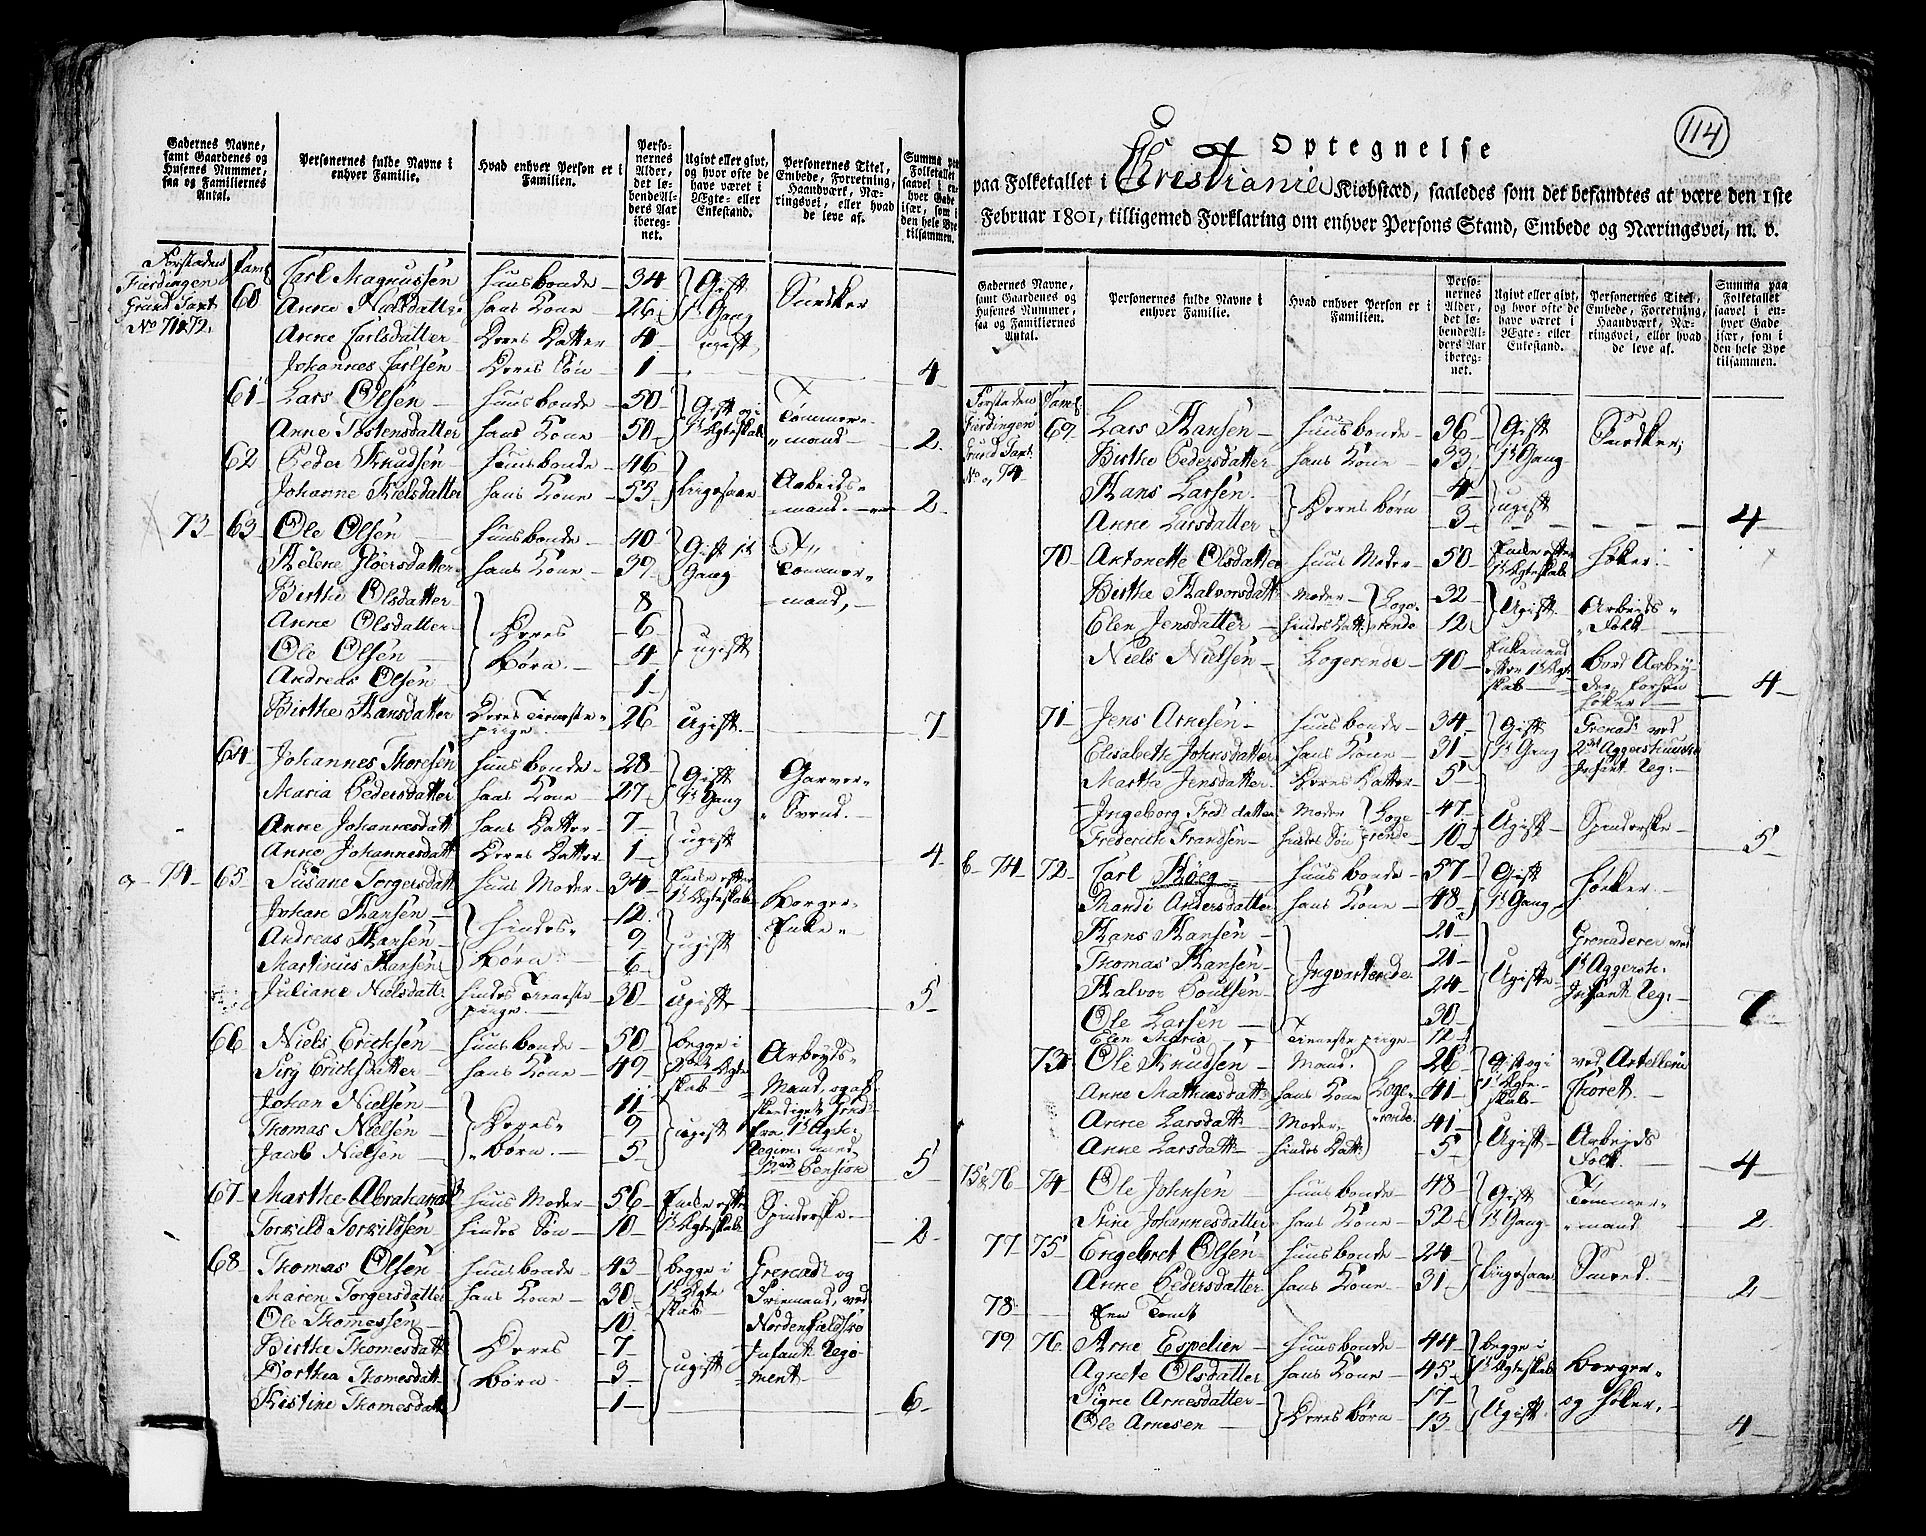 Gadernes Navne, samt Gaardenes og Husenes Nummer, saa og Familiernes Antal.
Personernes fulde Navne i enhver Familie.
Hvad enhver Person er i Familien.
Personernes Alder, det løbende Alders Aar iberegnet.
Ugivt eller givt, og hvor ofte de have været i Ægte- eller Enkestand.
Personernes Titel, Embede, Forretning, Haandværk, Næringsvei, eller hvad de leve af.
Summa paa Folketallet saavel i enhver Gade især, som i den hele Bye tilsammen.
Forstaden Fierdingen Grund Taxt No 71 & 72.
Faml
60 Carl Magnussen Huusbonde 34 Gift Snedker
Anne Nielsdatter hans Kone 26 1te Gang
Anne Carlsdatter Deres Datter 4 ugift
Johannes Carlsen Deres Søn 1 4
61 Lars Olsen Huusbonde 50 Gift og i Tømmer-
Anne Tostensdatter hans Kone 50 1te Ægteskab mand 2
62 Peder Knudsen Huusbonde 46 Ligesaa Arbeids-
Johanne Nielsdatter hans Kone 55 mand 2
73 63 Ole Olsen Huusbonde 40 Gift 1te Tømmer-
Helene Gloersdatter hans Kone 39 Gang mand
Birthe Olsdatter Deres Børn 8 ugift
Anne Olsdatter 6
Ole Olsen 4
Andreas Olsen 1
Birthe Hansdatter Deres Tieneste pige 26 Ugift 7
64 Johannes Thoresen Huusbonde 28 Gift Garver-
Maria Pedersdatter hans Kone 27 1te Gang Svend
Anne Johannesdatt hans Datter 7 ugift
Anne Johannesdatt Deres Datter 1 4
a 74 65 Susane Torgersdatt Huus Moder 34 Enke efter 1te Ægteskab Borger-
Johan Hansen hindes 12 ugift Enke
Andreas Hansen Børn 9
Martinus Hansen 6
Juliane Nielsdatt hindes Tieneste pige 30 Ugift 5
66 Niels Ericksen Huusbonde 50 begge i Arbeyds-
Siry Ericksdatter hans Kone 49 2det Ægteskab Mand, og
Johan Nielsen Deres 11 ugift
Thomas Nielsen Børn 9 fra 1te
Jacob Nielsen 5 Pension 5
67 Marthe Abrahamsd Huus Moder 56 Enke efter Spinderske
Torkild Torkildsen hindes Søn 10 1te Ægteskab 2
68 Thomas Olsen Huusbonde 43 begge i Grenad: og
Maren Torgersdatter hans Kone 30 1te Ægteskab Friemand, ved
Ole Thomessen Deres 10 ugift Nordenfieldske
Birthe Thomesdatt Børn 7 Infant: Regi-
Dorthea Thomesdatt 3 ment
Kistine Thomesdatt 1 6
114
Optegnelse
paa Folketallet i Christiania Kiøbstæd, saaledes som det befandtes at være den 1ste
Februar 1801, tilligemed Forklaring om enhver Persons Stand, Embede og Næringsvei, m. v.
Gadernes Navne, samt Gaardenes og Husenes Nummer, saa og Familiernes Antal.
Personernes fulde Navne i enhver Familie.
Hvad enhver Person er i Familien.
Personernes Alder, det løbende Alders Aar iberegnet.
Ugivt eller givt, og hvor ofte de have været i Ægte- eller Enkestand.
Personernes Titel, Embede, Forretning, Haandværk, Næringsvei, eller hvad de leve af.
Summa paa Folketallet saavel i enhver Gade især, som i den hele Bye tilsammen.
Forstaden Fierdingen Grund Taxt No a 74
Faml
69 Lars Hansen Huusbonde 36 Gift Snedker
Birthe Pedersdatter hans Kone 33 1te Gang
Hans Larsen Deres Børn 4 ugift
Anne Larsdatter 3 4
70 Antonette Olsdatter Huus Moder 50 Enke efter 1te Ægteskab Høker
Birthe Halvorsdatt Moder Loge- 32 Ugift Arbeids-
Elen Jensdatter hindes Datt: rende 12 Folk
Niels Nielsen Logerende 40 Enkemand efter 1te Ægteskab Bord Arbeyder 4
71 Jens Arnesen Huusbonde 34 Gift Grenad: ved
Elisabeth Johnsdatter hans Kone 31 1te Gang 2det Aggershuuske
Martha Jensdatter Deres Datter 5 Infant: Reg:
Ingeborg Fredsdatter Moder Loge 47 Ugift Spinderske
Frederich Frandsen hindes Søn rende 10 5
b 74 72 Carl Høeg Huusbonde 57 Gift Høker
Randi Andersdatter hans Kone 48 1te Gang
Hans Hansen Inqvarterede 21 Ugift Grenaderer ved
Thomas Hansen 21 1te Aggersh:
Halvor Poulsen 24 Infant: Reg:
Ole Larsen 30 7
Elen Maria Tieneste pige 12
73 Ole Knudsen Mand 26 Gift og i ved Artelleri
Anne Mathiasdatt hans Kone Loge- 41 1te Ægteskab Choret
Anne Larsdatt Moder rende 41 Ugift Arbeids
Anne Larsdatt hindes Datt 5 Folk 4
75 & 76 74 Ole Johnsen Huusbonde 48 Gift Tømmer-
Stine Johannesdatter hans Kone 52 1te Gang mand 2
77 75 Engebret Olsen Huusbonde 24 Ligesaa Smed
Anne Pedersdatter hans Kone 31 2
78 Een Tomt
79 76 Arne Espelien Huusbonde 44 begge i Borger
Agnete Olsdatter hans Kone 45 1te Ægteskab og Høker
Signe Arnesdatter Deres Børn 17 Ugift
Ole Arnesen 13 4